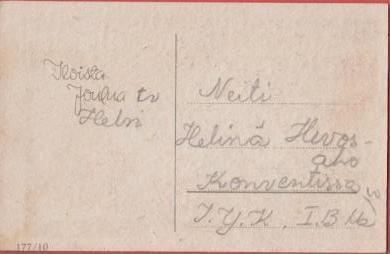 Iloista
Joulua tv
Helvi
Neiti
Helinä Hevos-
aho
Konventissa
I.Y.K. I.B
177/10